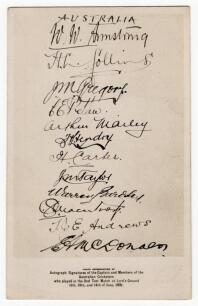 AUSTRALIA
W. W. Armstrong
H. L. Collins
J M Gregory
C E Pellew
Arthur Mailey
Hendry
H. Carter.
J M Taylor
Warren Bardsley
T. J. E. Andrews
E A McDonald
Autograph Signatures of the Captain and Members of the
Australian Cricketers
who played in the 2nd Test Match at Lord's Ground
11th, 13th, and 14th of June, 1921.